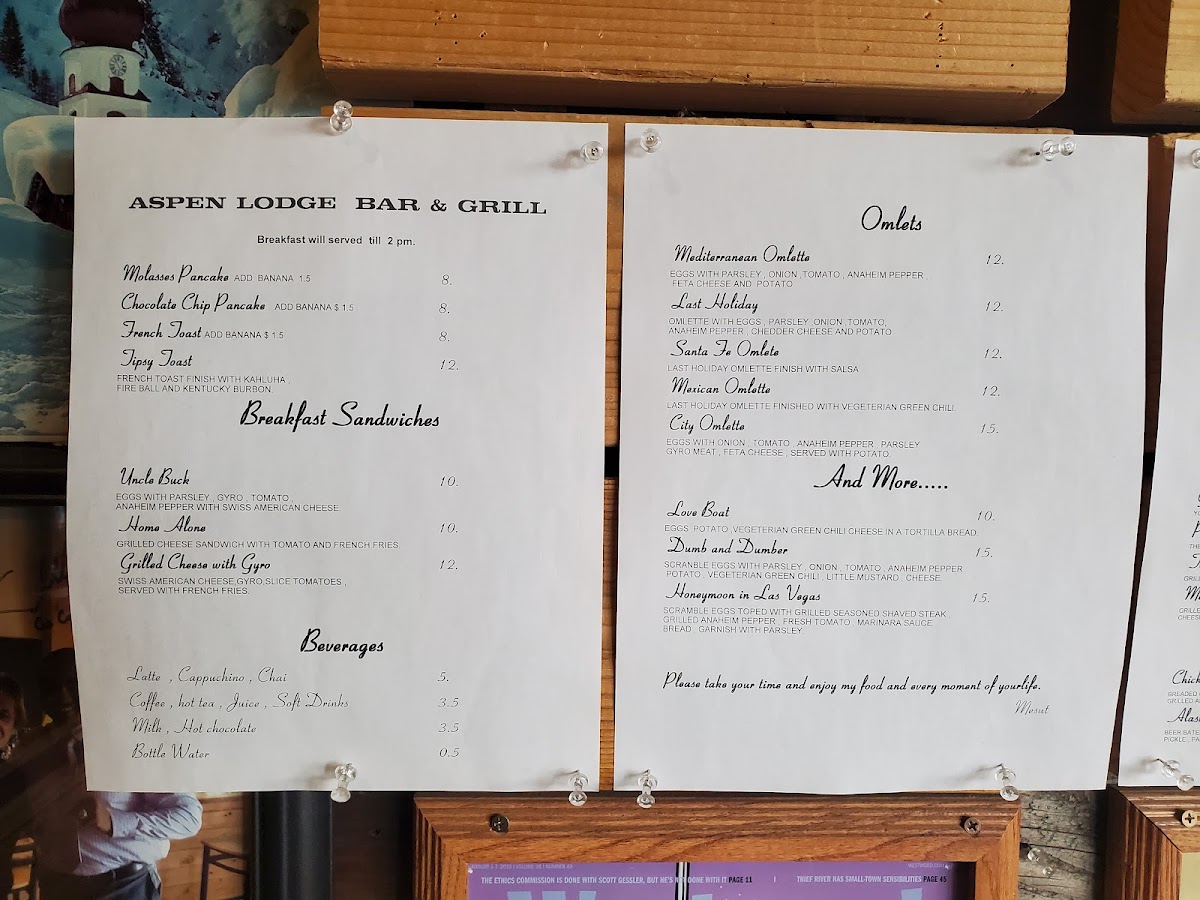 ASPEN LODGE BAR & GRILL
Breakfast will served till 2 pm.
Molasses Pancake ADD BANANA 1.5 8.
Chocolate Chip Pancake ADD BANANA $ 1.5 8.
French Toast ADD BANANA $ 1.5 8.
Tipsy Toast 12.
FRENCH TOAST FINISH WITH KAHLUHA ,
FIRE BALL AND KENTUCKY BURBON.
Breakfast Sandwiches
Uncle Buck 10.
EGGS WITH PARSLEY , GYRO , TOMATO ,
ANAHEIM PEPPER WITH SWISS AMERICAN CHEESE.
Home Alone 10.
GRILLED CHEESE SANDWICH WITH TOMATO AND FRENCH FRIES.
Grilled Cheese with Gyro 12.
SWISS AMERICAN CHEESE,GYRO,SLICE TOMATOES ,
SERVED WITH FRENCH FRIES.
Beverages
Latte , Cappuchino , Chai 5.
Coffee , hot tea , Juice , Soft Drinks 3.5
Milk , Hot chocolate 3.5
Bottle Water 0.5
Omlets
Mediterranean Omlette 12.
EGGS WITH PARSLEY , ONION ,TOMATO , ANAHEIM PEPPER ,
FETA CHEESE AND POTATO
Last Holiday 12.
OMLETTE WITH EGGS , PARSLEY ,ONION ,TOMATO,
ANAHEIM PEPPER , CHEDDER CHEESE AND POTATO
Santa Fe Omlete 12.
LAST HOLIDAY OMLETTE FINISH WITH SALSA
Mexican Omlette 12.
LAST HOLIDAY OMLETTE FINISHED WITH VEGETERIAN GREEN CHILI.
City Omlette 15.
EGGS WITH ONION , TOMATO , ANAHEIM PEPPER , PARSLEY
GYRO MEAT , FETA CHEESE , SERVED WITH POTATO.
And More.....
Love Boat 10.
EGGS POTATO ,VEGETERIAN GREEN CHILI CHEESE IN A TORTILLA BREAD.
Dumb and Dumber 15.
SCRANBLE EGGS WITH PARSLEY , ONION , TOMATO , ANAHEIM PEPPER
POTATO , VEGETERIAN GREEN CHILI , LITTLE MUSTARD , CHEESE.
Honeymoon in Las Vegas 15.
SCRAMBLE EGGS TOPED WITH GRILLED SEASONED SHAVED STEAK ,
GRILLED ANAHEIM PEPPER , FRESH TOMATO , MARINARA SAUCE
BREAD , GARNISH WITH PARSLEY.
Please take your time and enjoy my food and every moment of yourlife.
Mesut
THE ETHICS COMMISSION IS DONE WITH SCOTT GESSLER, BUT HE'S NOT DONE WITH IT PAGE 11 | THIEF RIVER HAS SMALL-TOWN SENSIBILITIES PAGE 45